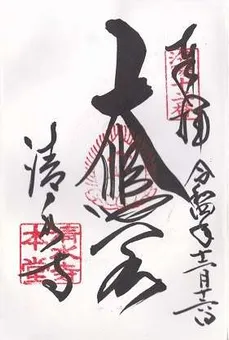 奉拝
令和四年十二月十六日
大悲閣
清水寺
清水寺
本堂